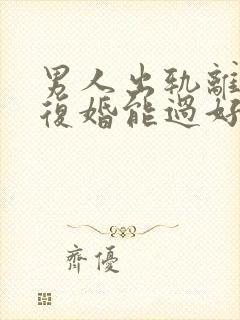 男人出轨離
復婚能過好
齊優